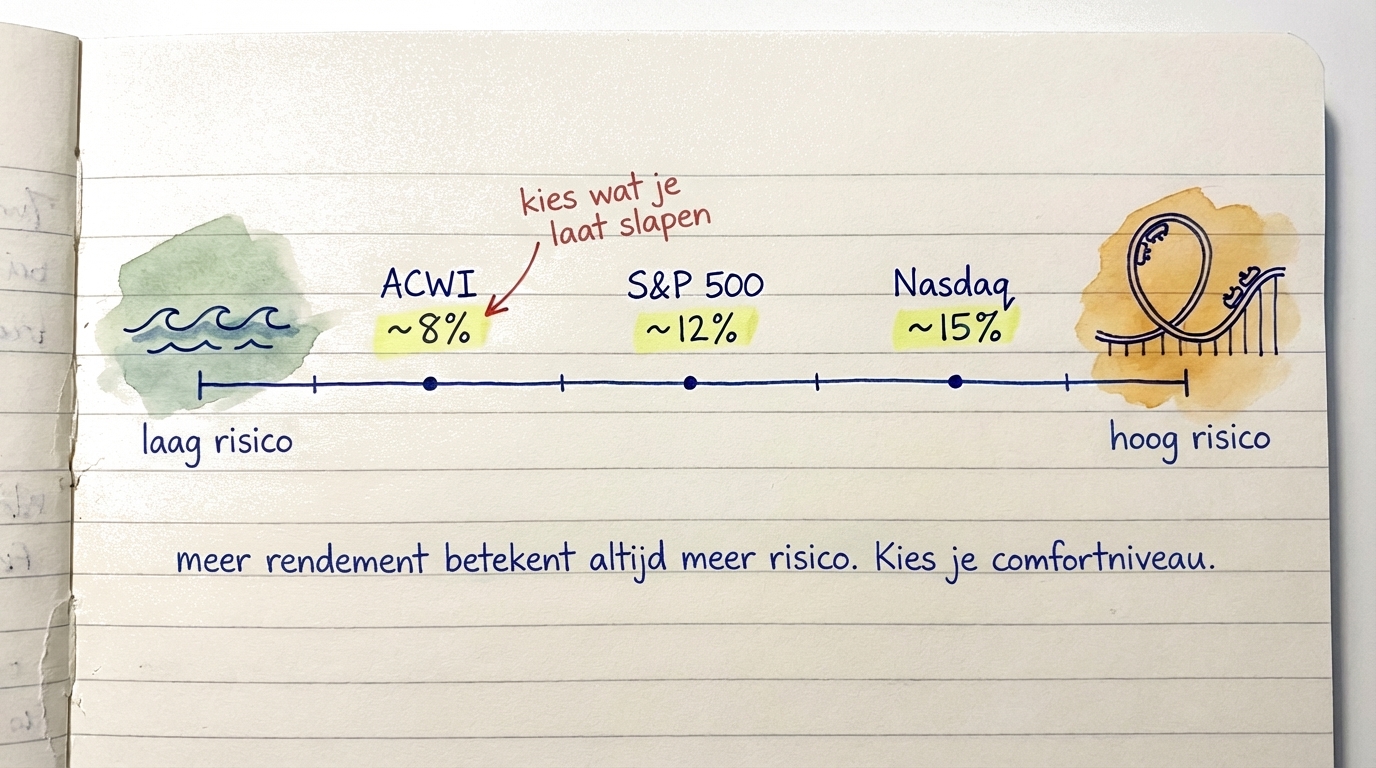 kies wat je
laat slapen
ACWI
~8%
S&P 500
~12%
Nasdaq
~15%
laag risico
hoog risico
meer rendement betekent altijd meer risico. Kies je comfortniveau.